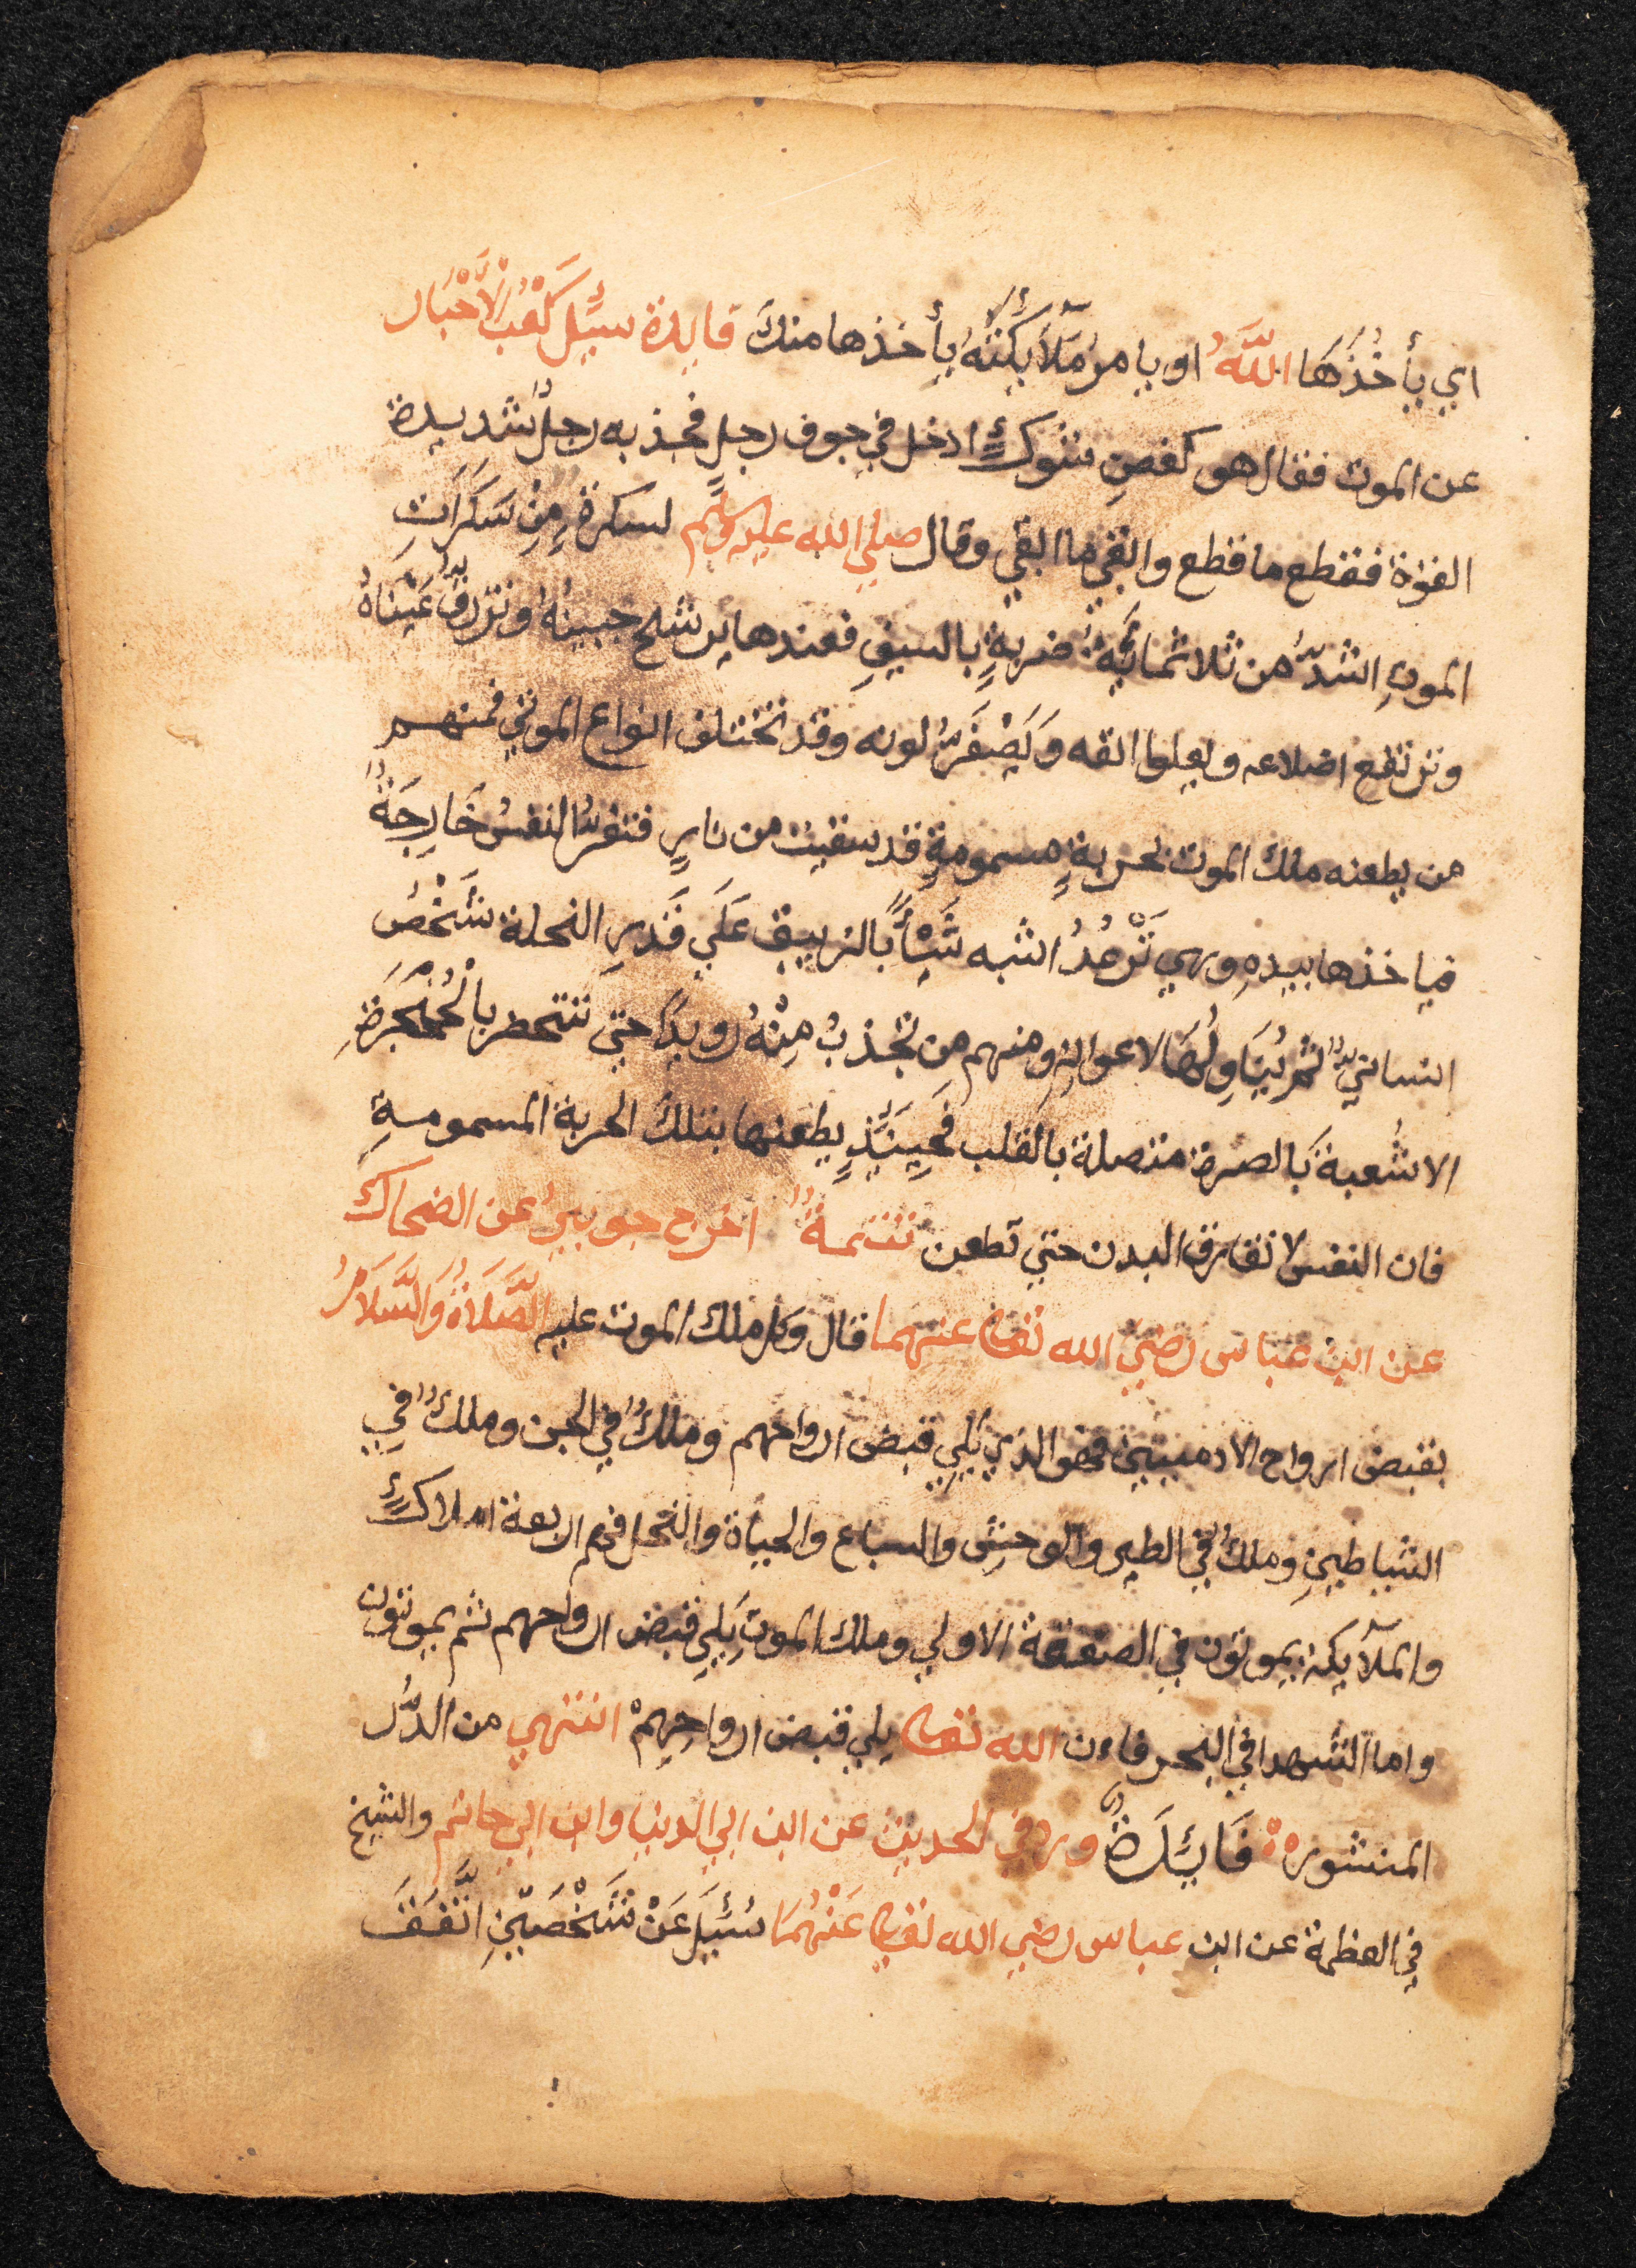 اي يأخُذَهَا اللَّهُ او يامر مَلَآيِكَتُهُ يأخذها منك فايدة سيَئِل كَعْبُ الأَحْبَار
عن الموت فقال هو كغصنِ شوكٍ ادخل في جوف رجلٍ فجذبه رجلٌ شديدة
القوة فقطع ما قطع وابقي ما ابقي وقال صلي الله عليه وسلم لسكرةٍ مِنْ سَكَرَاتِ
الموتِ اشدُّ من ثلاثمائةِ ضربةٍ بالسيفِ فعندها يرشح جبينُه وتزرف عَيْنَاهُ
وترتفع اضلاعه ويعلوا انفه وَيَصْفَرُّ لونه وقد تختلف انواع الموتي فمنهم
من يطعنه ملك الموت بحربةٍ مسمومةٍ قد سقيت من نارٍ فتفرُّ النفسُ خَارِجَةً
فياخذها بيدهِ وهي تَرْعُدُ اشبه شَيْأً بالزيبق عَلَي قَدرِ النحلة شَخْصٌ
انسانيٌّ ثم يُنَاوِلُهَا لاعوانهِ ومنهم من تجذبُ مِنْهُ رويدًا حتي تنحصر بالْحُنْجَرَةِ
الا شُعبة كَالصرة متصلة بالقلب فَحِيَنَئِذٍ يطعنها بتلك الحربة المسمومةِ
فان النفس لا تفارق البدن حتي تطعن تتمةٌ اخرج جويبر عن الضحاك
عن ابن عباس رضي الله تعالي عنهما قال وكل ملك الموت عليه الصَّلَاةُ وَالسَّلَامُ
بقبض ارواح الادميين فهو الذي يَلِي قبض ارواحهم وملكٌ في الجن وملكٌ في
الشياطينِ وملك في الطير والوحش والسباع والحياة والنحل فهم اربعة املاكٍ
والملآيكة يموتون في الصعقة الاولي وملك الموت يَلِي قبض ارواحهم ثم يموتون
واما الشهدا في البحر فان الله تعالي يلي قبض ارواحِهِمْ انتهي من الدُّرَرِ
المنشوره فَايِدَةٌ ورد في الحديث عن ابن ابي الدنيا وابن ابي حاتم والشيخ
في العظمة عن ابن عباس رضي الله تعالي عَنْهُمَا سُئِيَل عَنْ شَخْصَيْنِ اتَّفَقَ